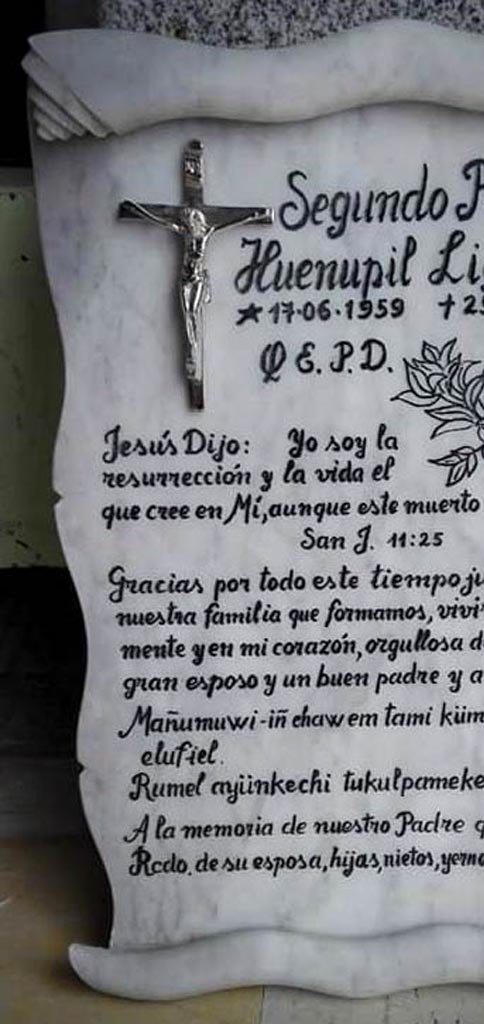 Segundo
Huenupil
★17-06-1959 ✝
Q E. P. D.
Jesús Dijo: Yo soy la
resurrección y la vida el
que cree en Mí, aunque este muerto
San J. 11:25
Gracias por todo este tiempo
nuestra familia que formamos,
mente y en mi corazón, orgullosa
gran esposo y un buen padre y
Mañumuwi-iñ chaw em tami
elufiel.
Rumel ayiinkechi
A la memoria de nuestro Padre
Rcdo. de su esposa, hijas, nietos,